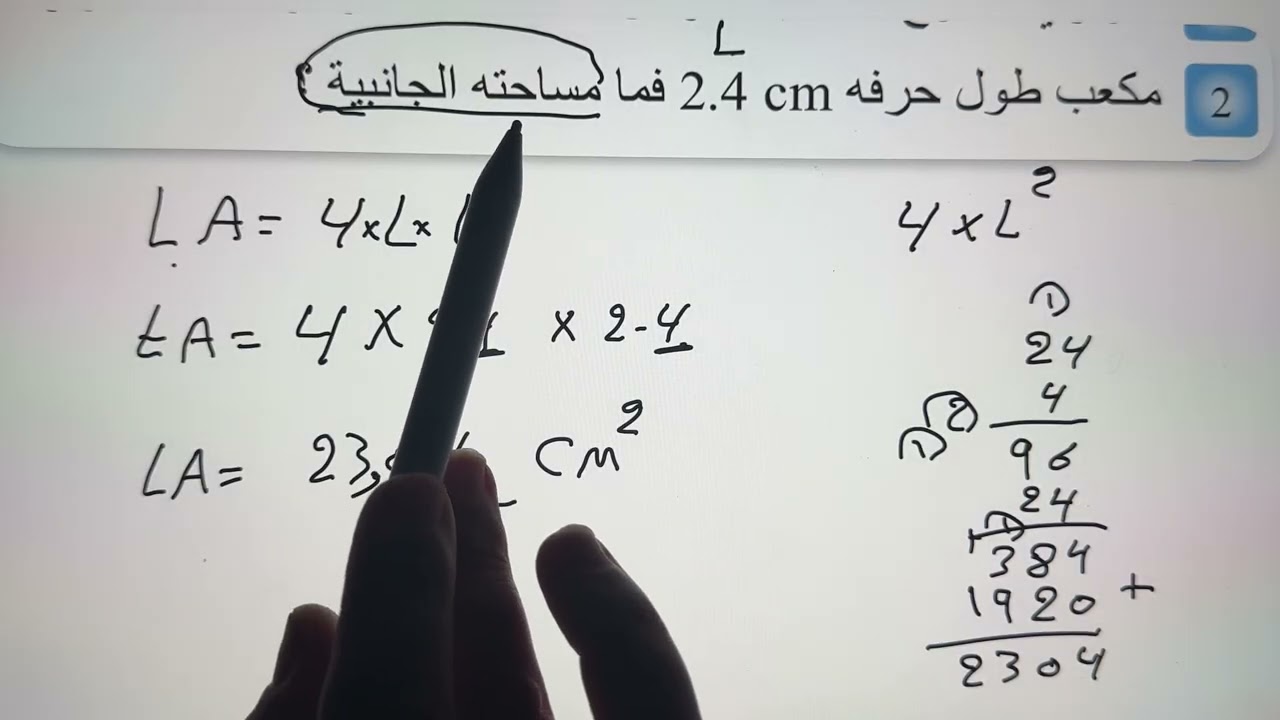 L
2 مكعب طول حرفه 2.4 cm فما مساحته الجانبية ؟
LA = 4 × L ×
4 × L²
LA = 4 × × 2-4
LA = 23, cm²
①
24
4
② ①
96
24
①
384
1920 +
2304